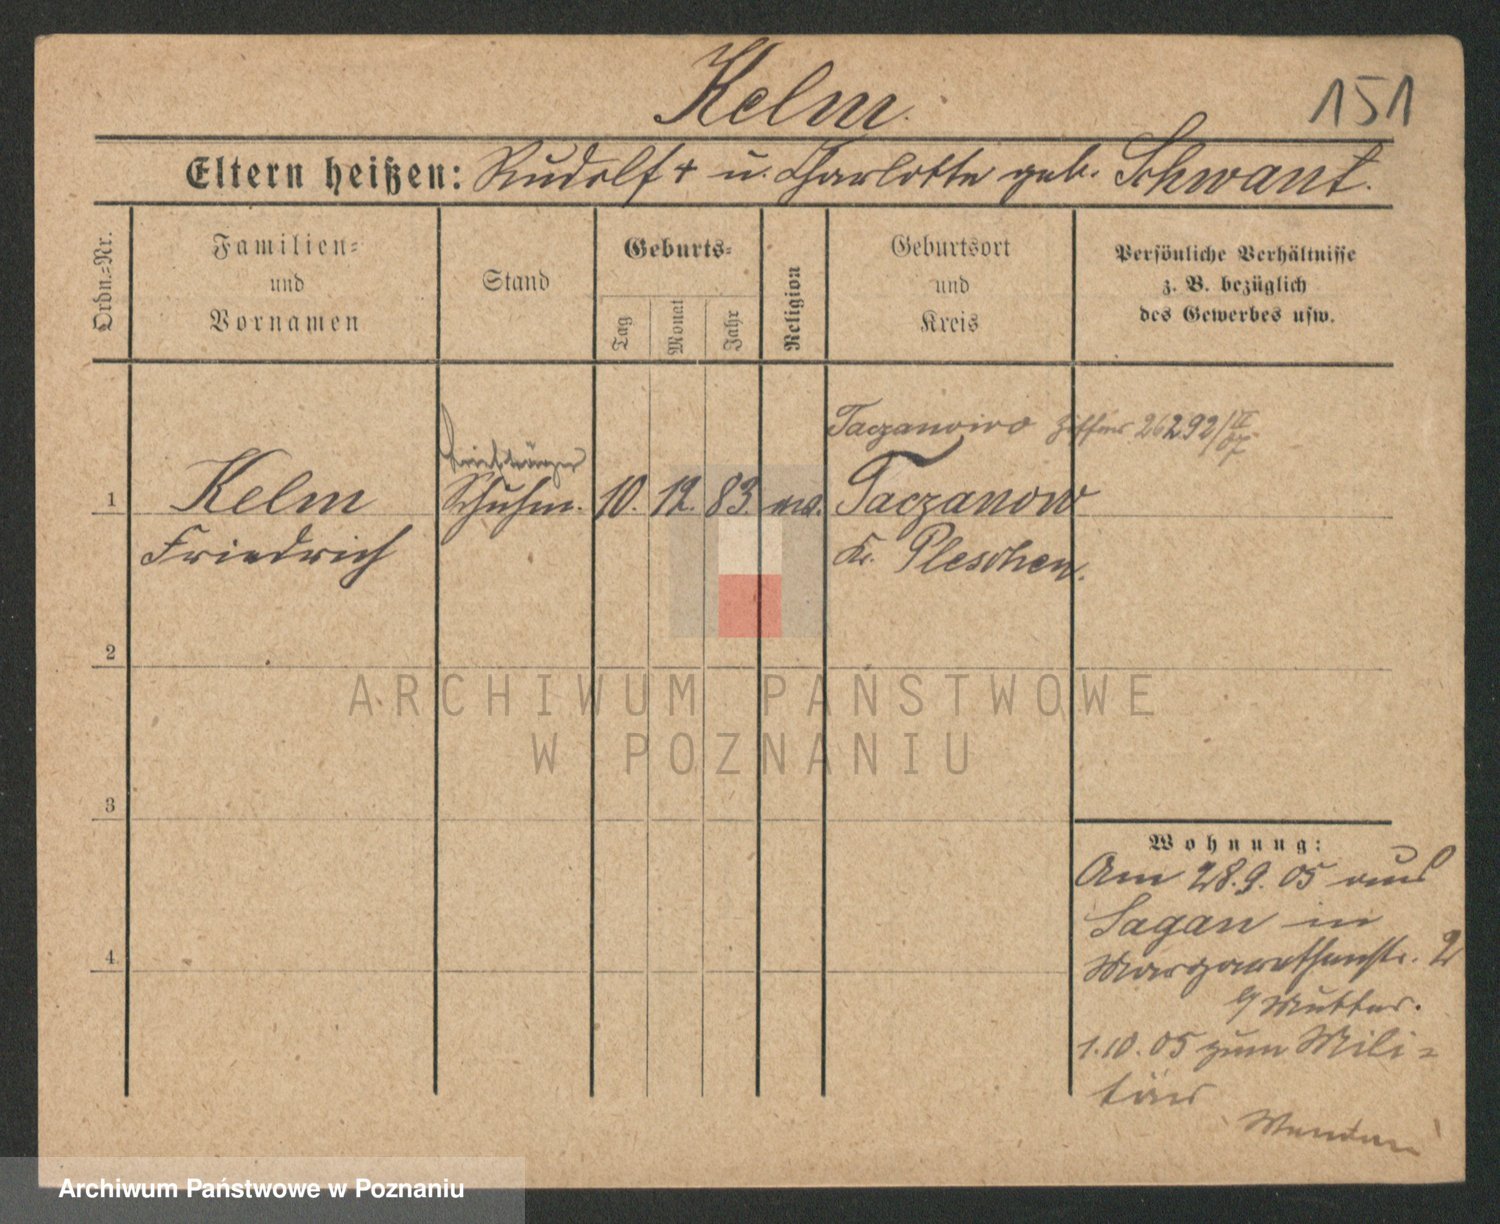 Kelm.
151
Eltern heißen: Rudolf + u. Charlotte geb. Schwant.
Ordn.=Nr.
Familien=
und
Vornamen
Stand
Geburts=
Tag
Monat
Jahr
Religion
Geburtsort
und
Kreis
Persönliche Verhältnisse
z. B. bezüglich
des Gewerbes usw.
Taczanowo 26292/
Briefträger
1 Kelm Schuhm. 10. 12. 83. Taczanow
Friedrich Kr. Pleschen.
2
ARCHIWUM PAŃSTWOWE
W POZNANIU
3
Wohnung:
Am 28.9.05 aus
Sagan in
Margarethenstr. 2
b/ Mutter.
4
1.10.05 zum Mili=
tär
Wenden
Archiwum Państwowe w Poznaniu